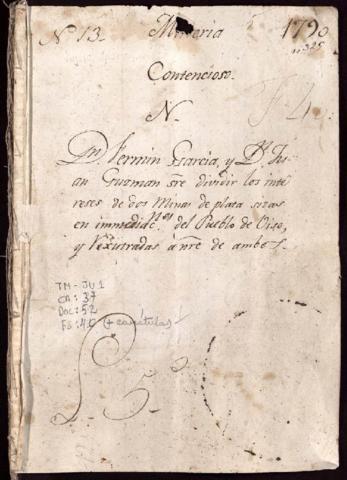 Nº 13. Mineria 1790
nº 325
Contencioso.
N.
Dn. Fermin Garcia, y Dn. Ju-
an Guzman sre dividir los inte-
reses de dos Minas de plata sitas
en immediac.nes del Pueblo de
y rexistradas á nre de ambos.
TM-JU 1
CA: 37
DOC: 52
FS: 40 (+ carátula)